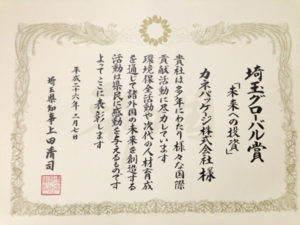 埼玉グローバル賞
「未来への投資」
カネパッケージ株式会社 様
貴社は多年にわたり様々な国際
貢献活動に尽力しています
環境保全活動や次代の人材育成
を通じて諸外国の未来を創造する
活動は県民に感動を与えるものです
よってここに表彰します
平成二十六年二月七日
埼玉県知事 上田清司